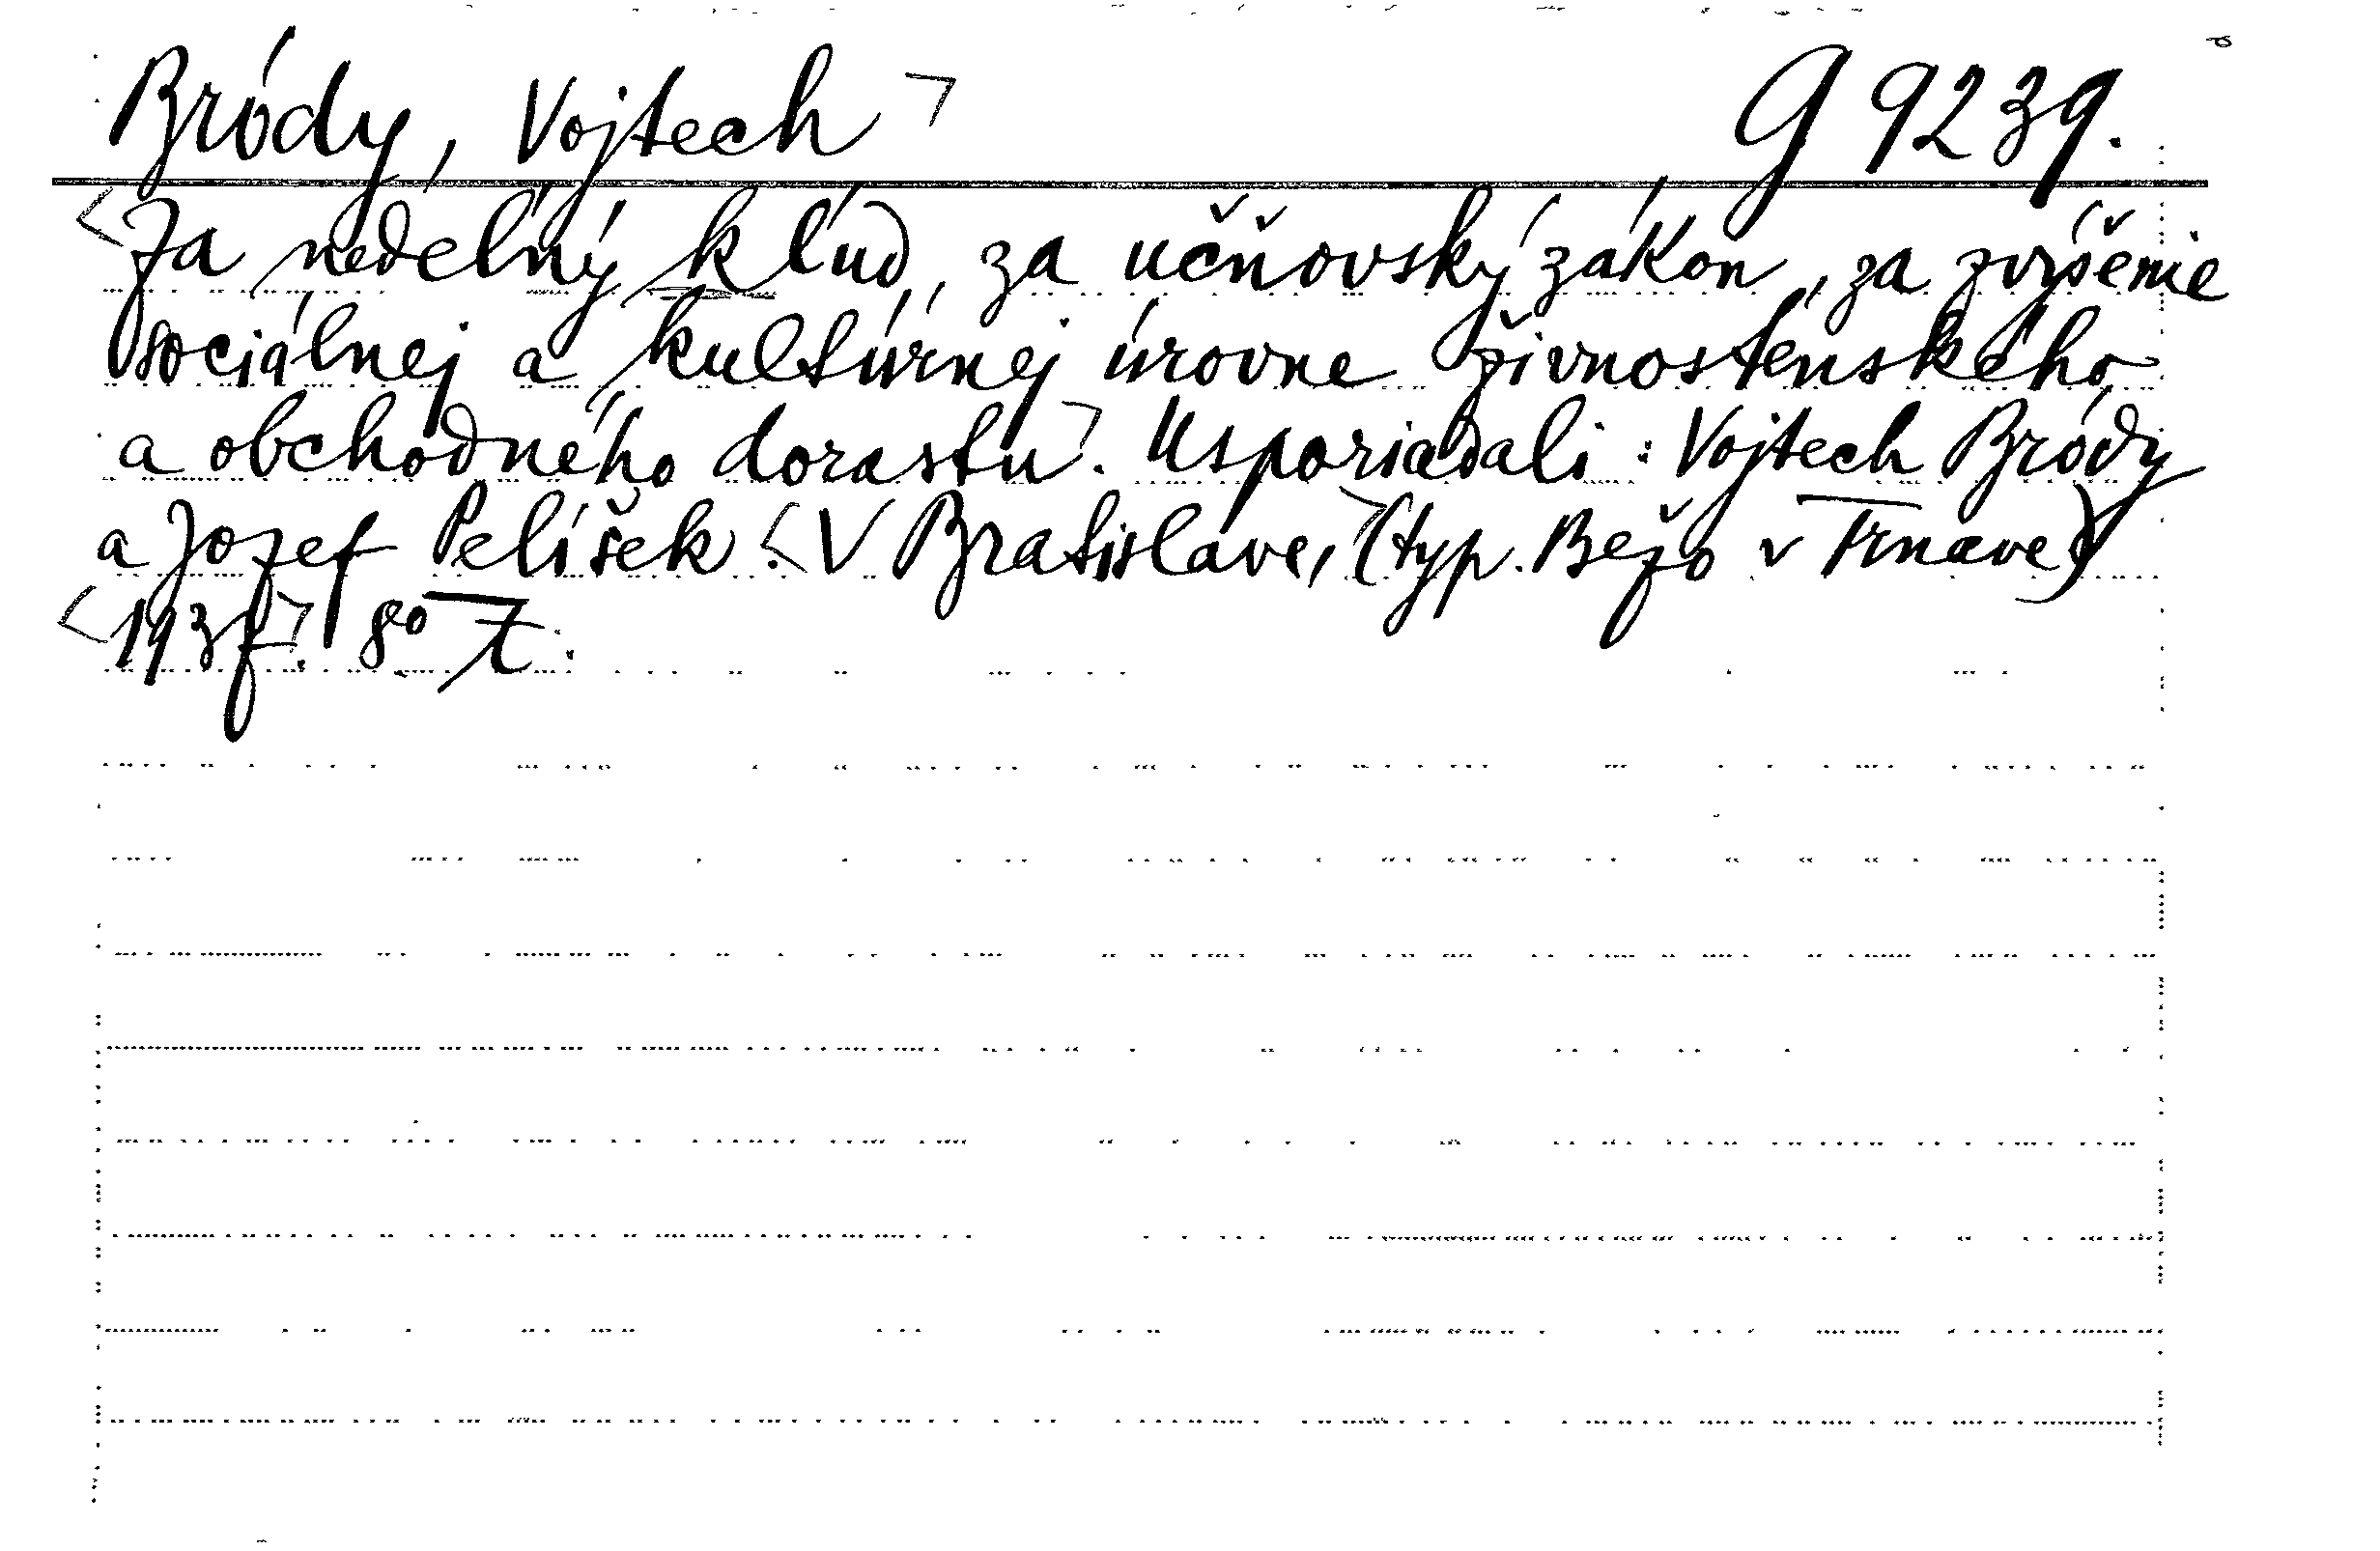 Bródy, Vojtech ㄱ G 9239.
<Za nedeľný kľud, za učňovský zákon, za zvýšenie
sociálnej a kultúrnej úrovne živnostenského
a obchodného dorastu>. Usporiadali: Vojtech Bródy
a Jozef Pelíšek. <V Bratislave,> (typ. Bežo v Trnave)
<1937>. 8°